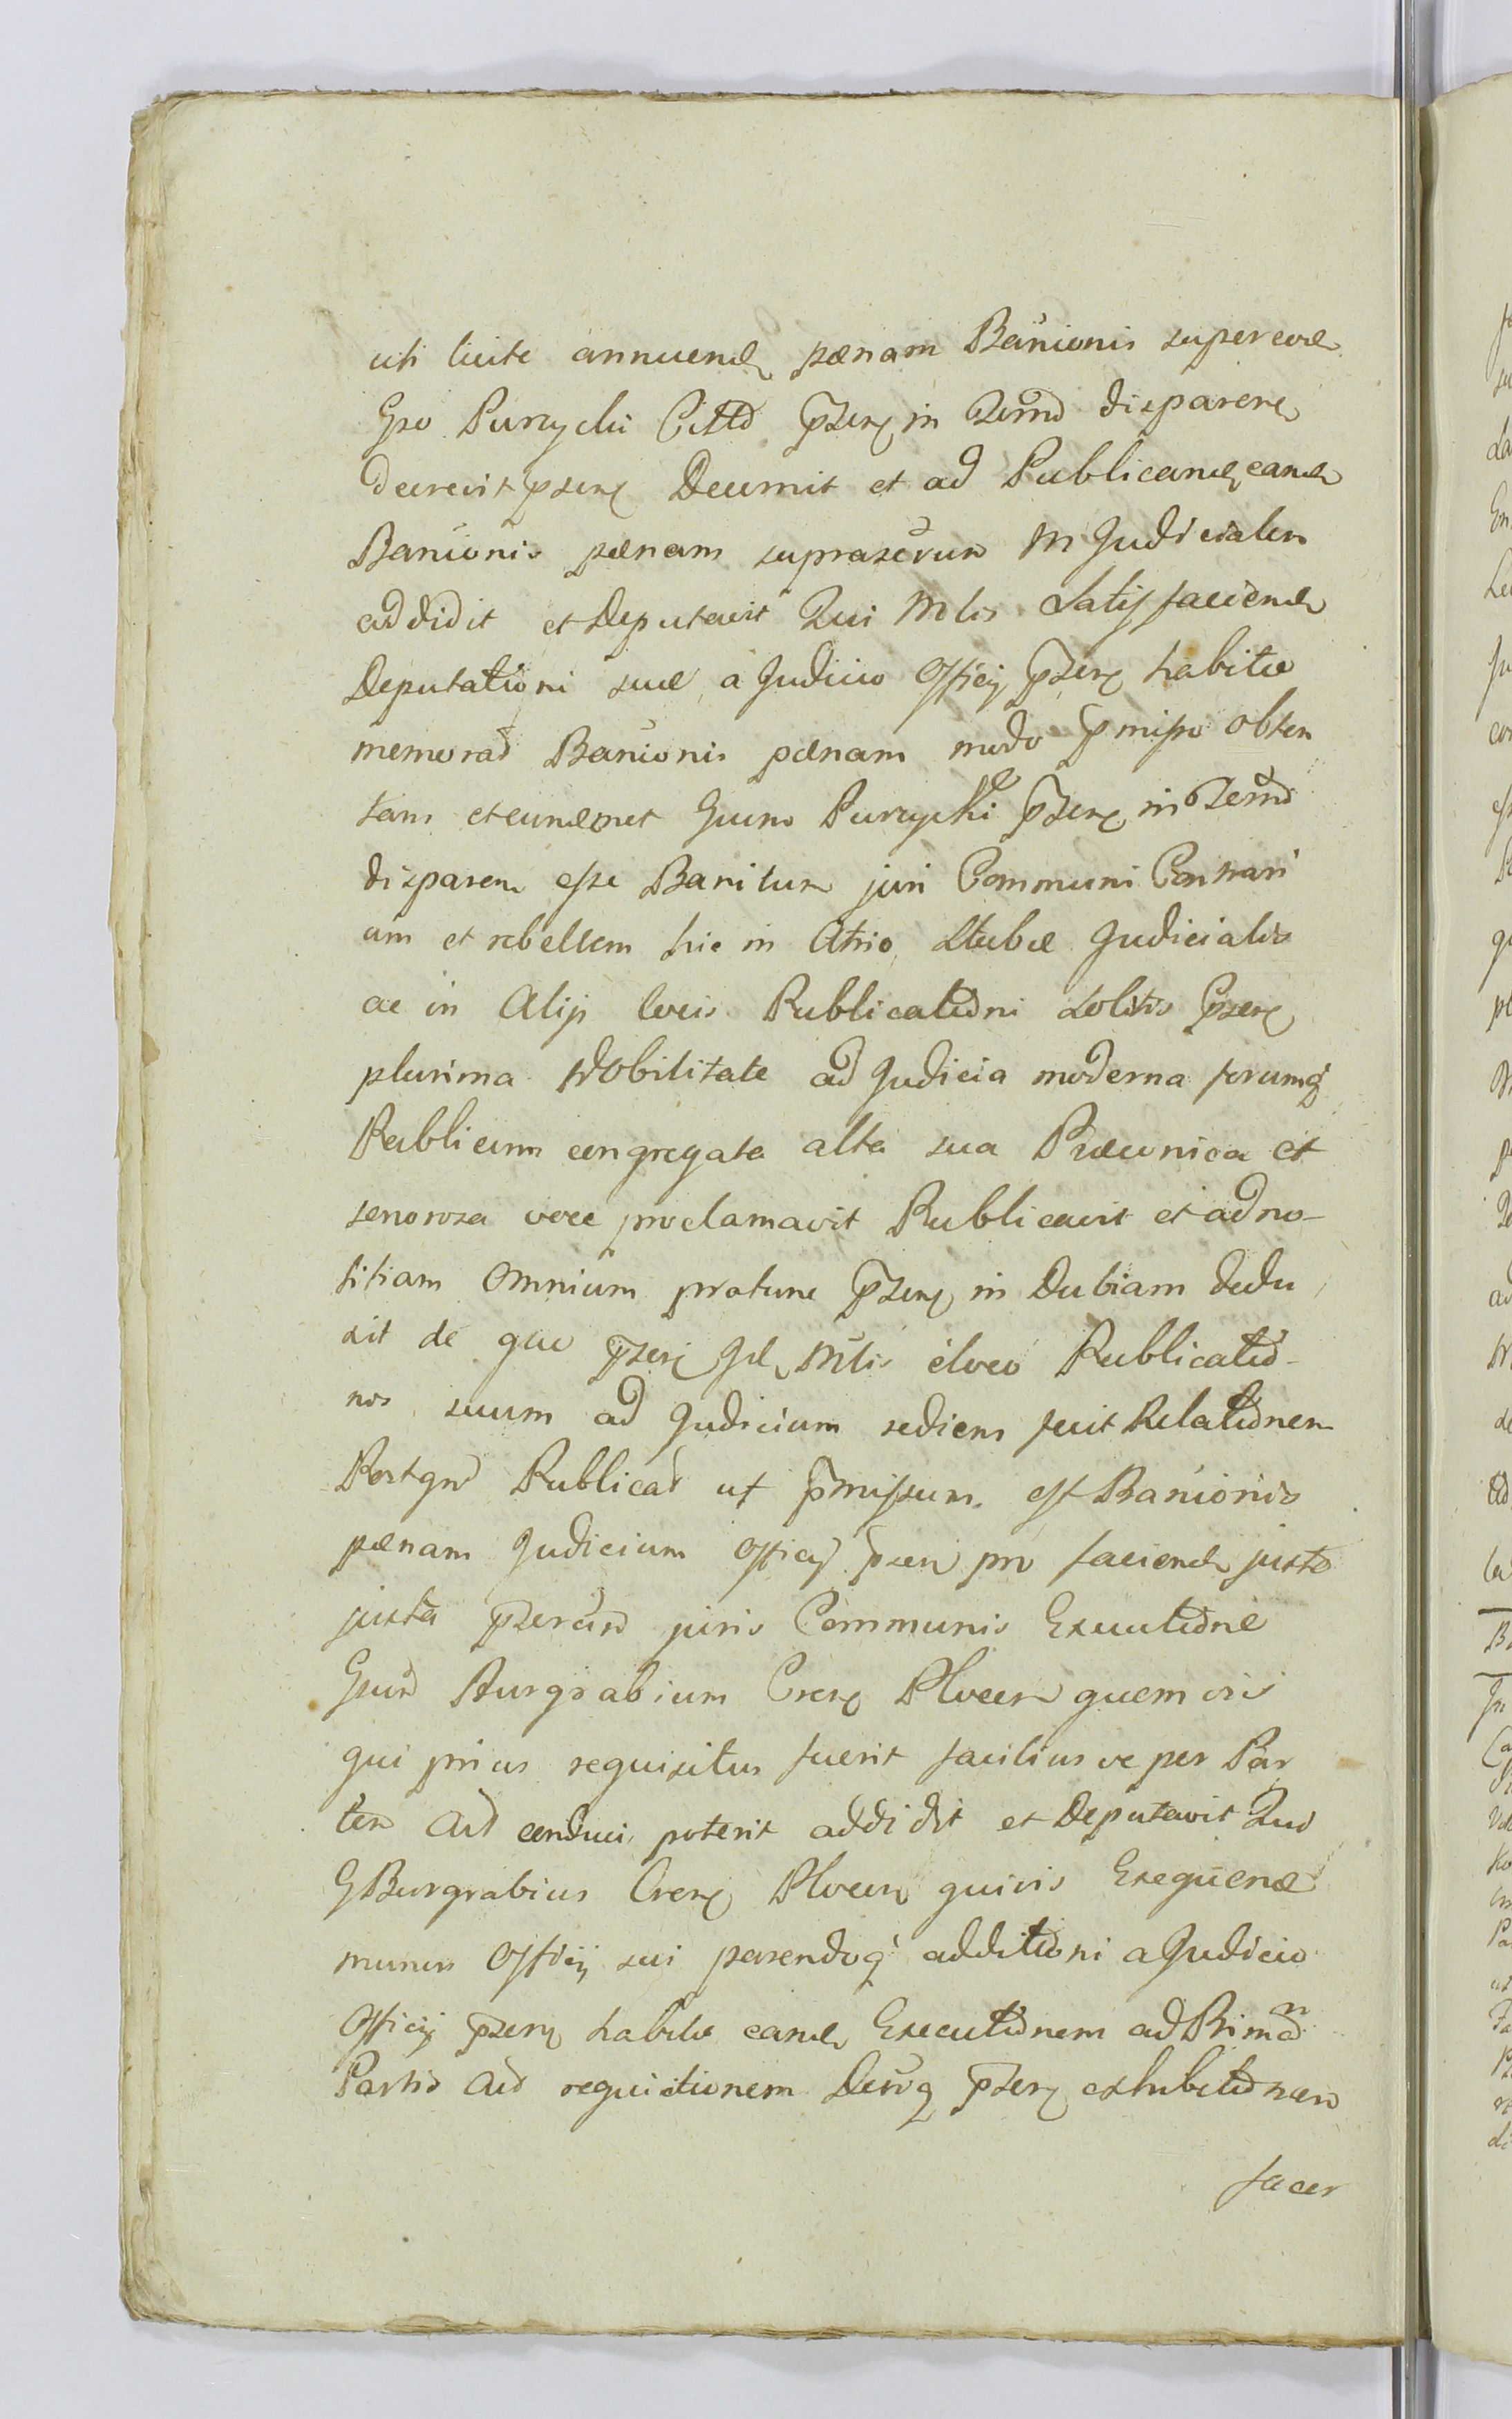 uti licite annuend pænam Banionis super eod
Gso Puzycki Cittd pszen in Termd disparen
decrevit pszen Decernit et ad Publicand eand
Banionis pænam suprascrum M Judicialem
addidit et Deputavit Qui Mtis Satisfaciend
Deputationi suæ a Judicio Officij pszen habitæ
memorad Banionis pænam modo pmisso obten
tam et eundmet Gsum Puzycki pszen in Termd
disparen esse Banitum juri Communi Contrari
um et rebellem hic in Atrio Stubæ Judicialis
ac in Alijs locis Publicationi Solitis Cpszen
plurima Nobilitate ad Judicia moderna forumq
Publicum congregata alta sua Præconica et
sonorosa voce proclamavit Publicavit et ad no-
titiam Omnium protunc pszen in Dubiam dedu
xit de quo pszen Jd Mtis eloco Publicatio-
nis suum ad Judicium rediens fecit Relationem
Postqm Publicad ut pmissum est Banionis
pænam Judicium Officij pszen pro faciend justo
juxta pszerum juris Communis Executione
Gsum Burgrabium Cren Ploceen quem vis
qui prius requisitus fuerit facilius ve per Par
tem Ad conduci poterit addidit et Deputavit Qui
G Burgrabius Cren Ploceen quivis Exequend
munus Officij sui parendoq additioni a Judicio
Officij pszen habitæ eand Executionem ad Primam
Partis Ad requisitionem Decrq pszen exhibitionem
facer